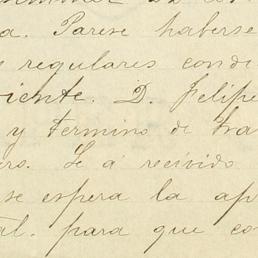 a. Parese haberse
s regulares conde
viente. D. Felipe
y termino de tra
ro. Se á recivido
se espera la ap
tal. para que co